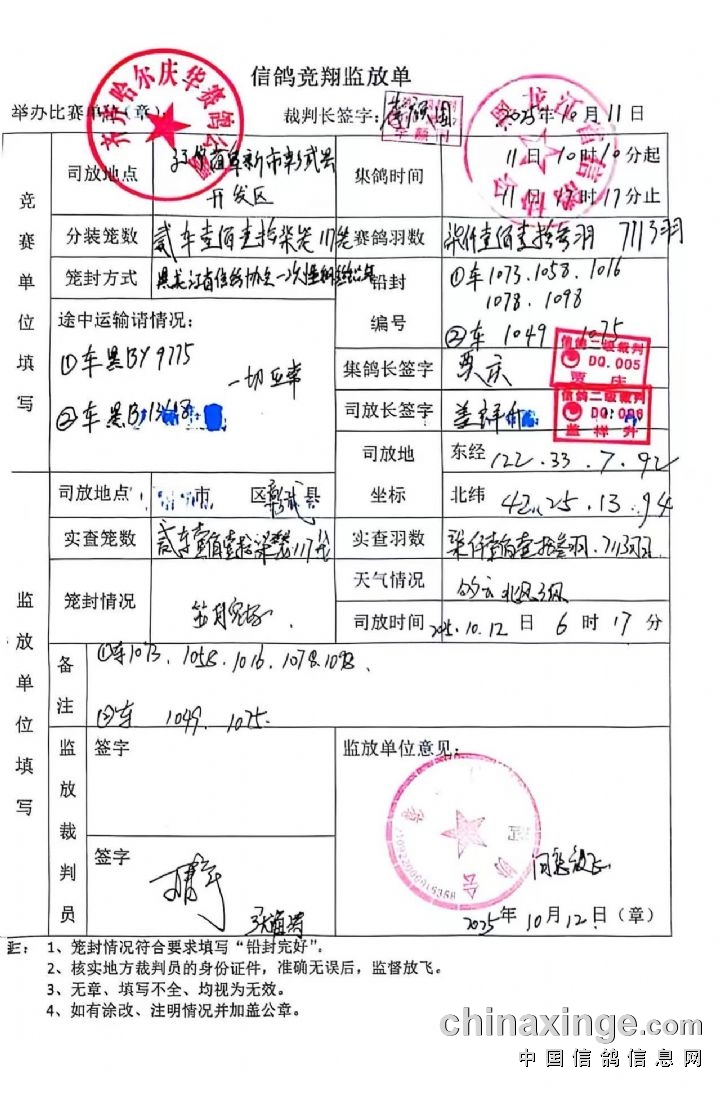 信鸽竞翔监放单
举办比赛单位(章)
裁判长签字:
2025年10月11日
齐齐哈尔庆华赛鸽公
黑龙江省信鸽协会
竞赛单位填写
司放地点
阜新市彰武县
开发区
集鸽时间
11日10时10分起
11日17时17分止
分装笼数
贰车壹佰壹拾柒笼 117笼
赛鸽羽数
柒仟壹佰壹拾叁羽 7113羽
笼封方式
黑龙江省信鸽协会一次性
铅封
编号
①车1073.1058.1016
1078.1098
②车 1049 1075
途中运输请情况:
①车黑BY9775
②车黑B
一切正常
集鸽长签字
贾庆
信鸽二级裁判
DQ.005
贾庆
司放长签字
盖祥升
信鸽二级裁判
DQ.006
盖祥升
司放地
坐标
东经 122.33.7.92
北纬 42.25.13.94
监放单位填写
司放地点
市 区彰武县
实查笼数
贰车壹佰壹拾柒笼117笼
实查羽数
柒仟壹佰壹拾叁羽.7113羽
笼封情况
铅封完好
天气情况
多云北风3级
司放时间
2025.10.12日6时17分
备注
①车1073.1058.1016.1078.1098.
②车 1049.1075.
监放裁判员
签字
签字
监放单位意见:
同意放飞
2025年10月12日(章)
注:
1、笼封情况符合要求填写“铅封完好”。
2、核实地方裁判员的身份证件,准确无误后,监督放飞。
3、无章、填写不全、均视为无效。
4、如有涂改、注明情况并加盖公章。
chinaxinge.com
中国信鸽信息网